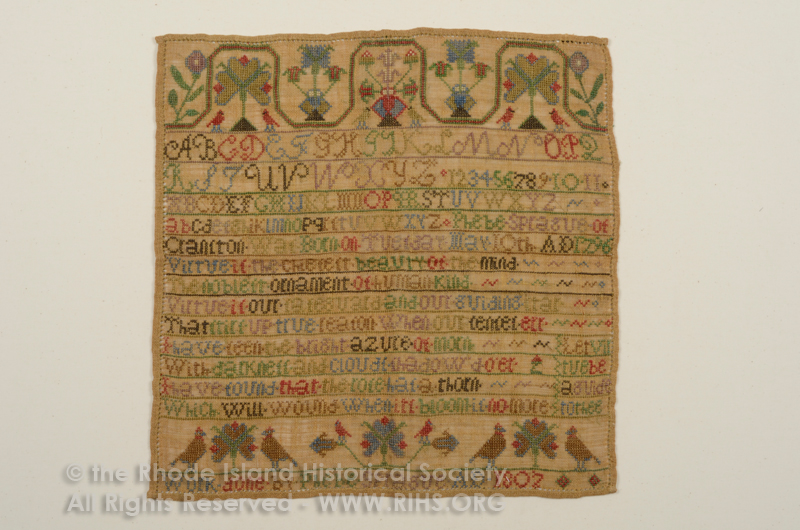 ABCDEFGHIJKLMNOPQ
RSTUVWXYZ 1234567891011
ABCDEFGHIJKLMNOPRSTUVWXYZ
abcdefghiklmnopqrstuvwXYZ Phebe Sprague of
Cranston Was Born on Tuesday May 10th AD 1796
Virtue is the chiefest beauty of the mind
The noblest ornament of human kind
Virtue is our safeguard and our guiding star
That stirs up true reason When our senses err
I have seen the bright azure of morn
With darkness and clouds shadow'd o'er
I have found that the rose has a thorn
Which Will Wound When its bloom is no more
Let vir
tue be
a guide
to thee
Work done By 1807
© the Rhode Island Historical Society
All Rights Reserved - WWW.RIHS.ORG